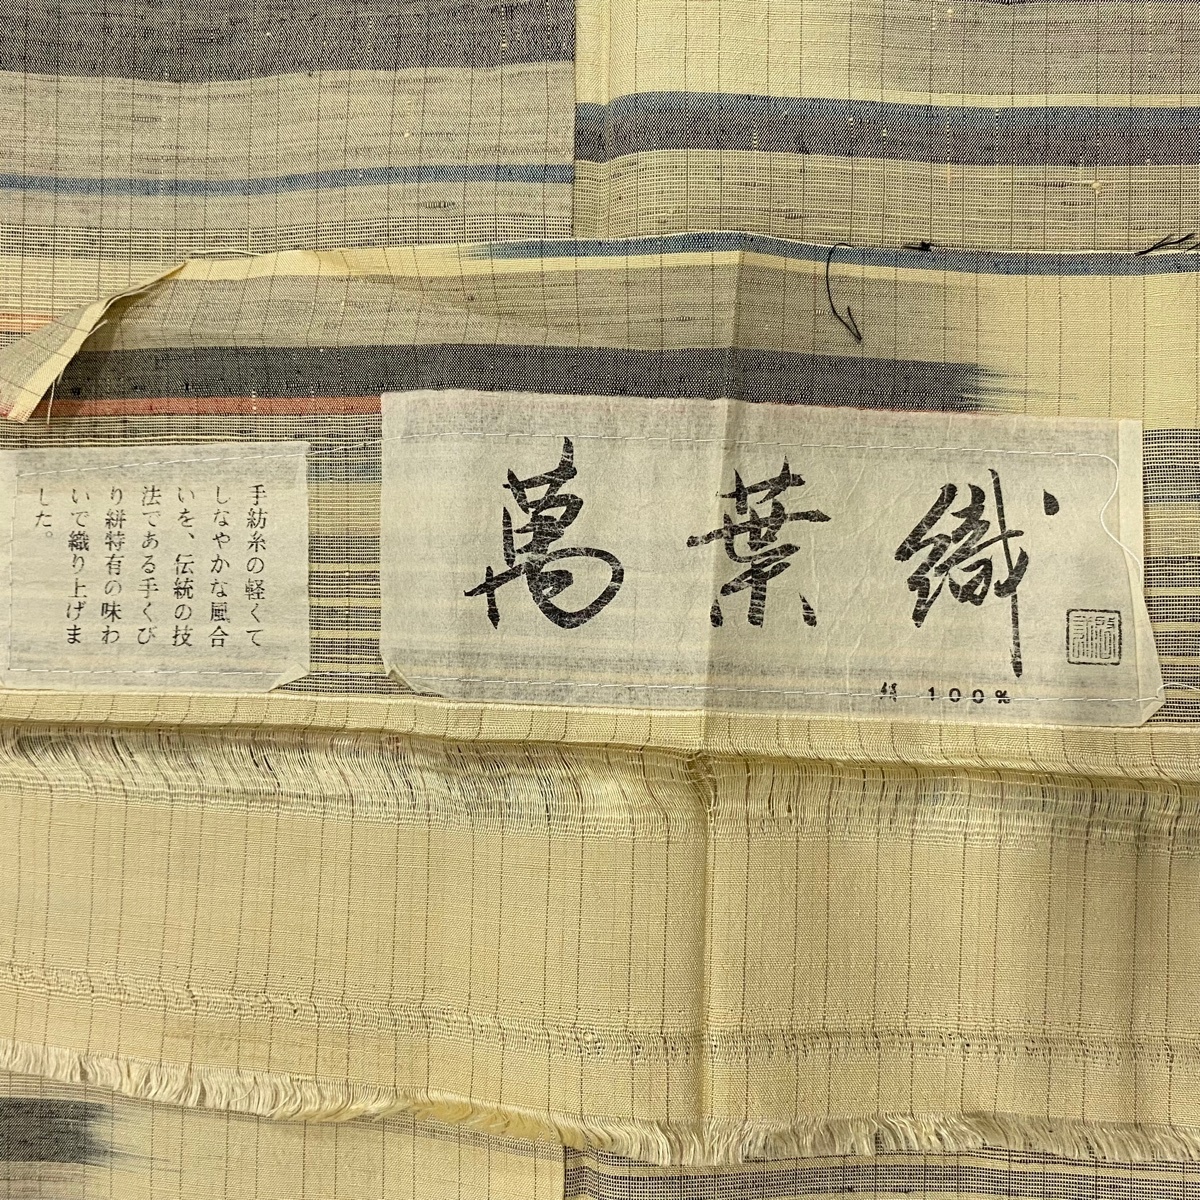 萬葉織
絹 100%
手紡糸の軽くて
しなやかな風合
いを、伝統の技
法である手くび
り絣特有の味わ
いで織り上げま
した。